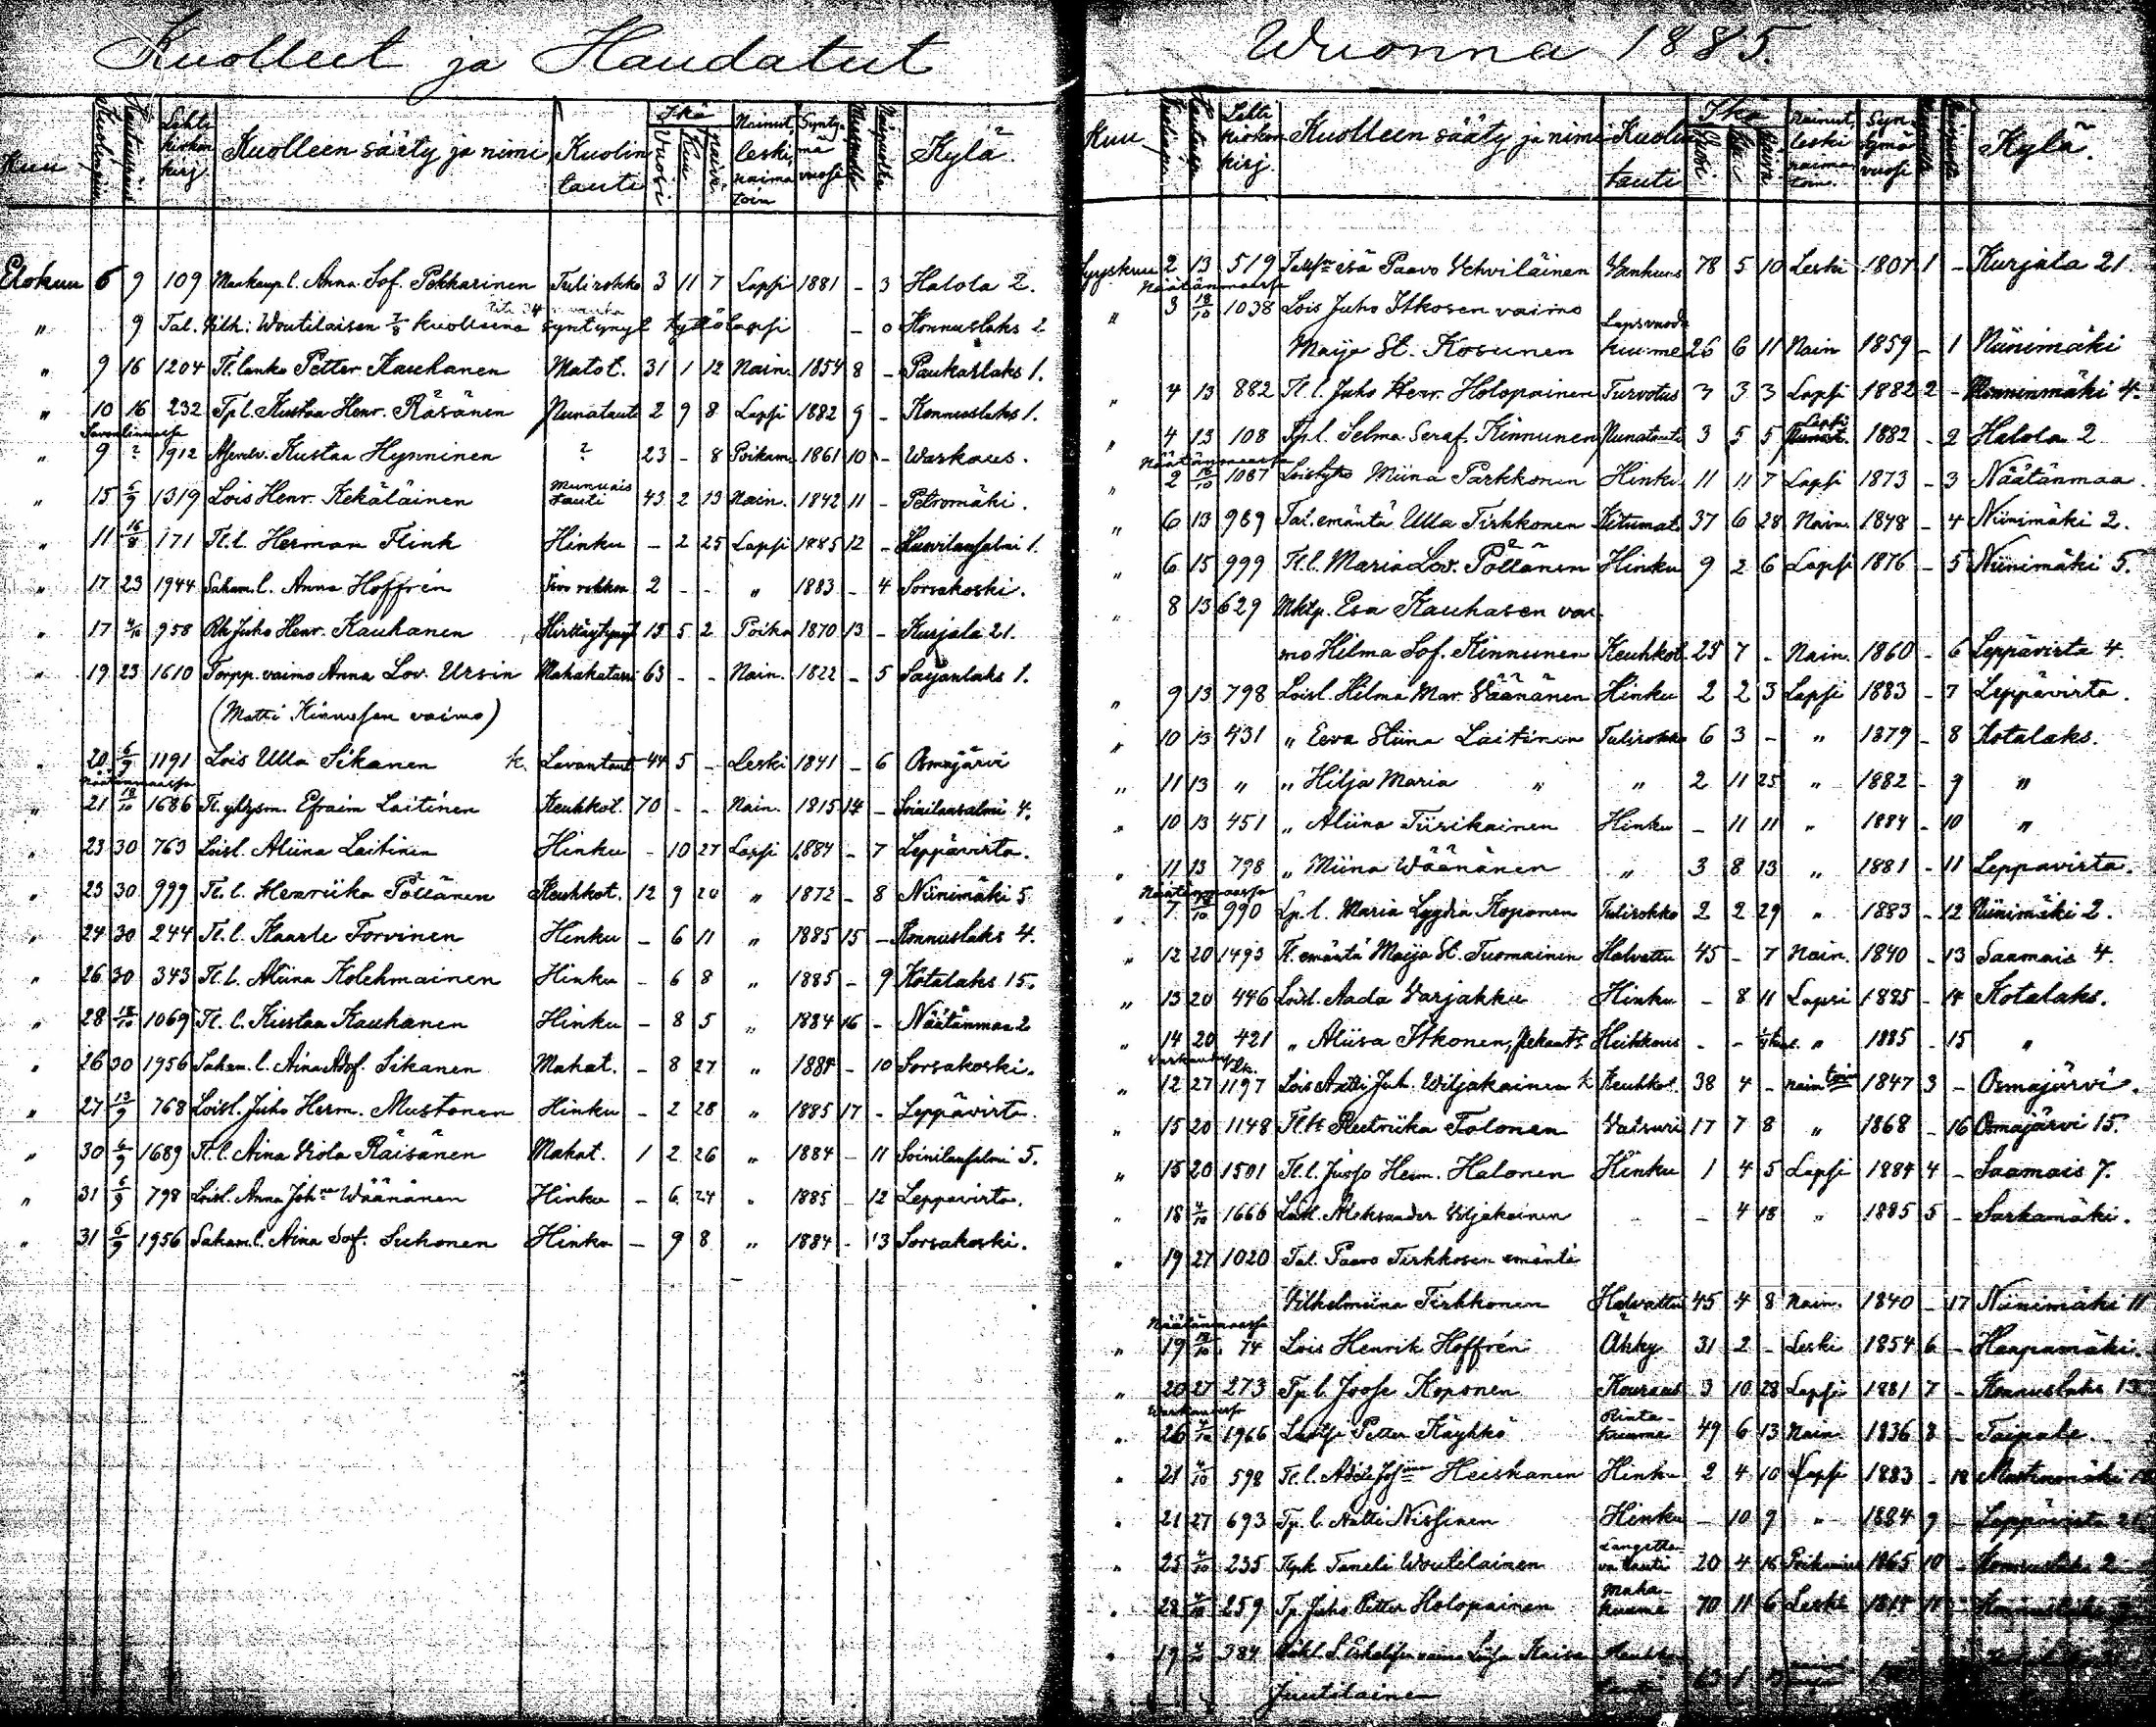 Kuolleet ja Haudatut
Kuu Kuolinpäivä Hautauspäivä Lehti kirkon kirj. Kuolleen sääty ja nimi Kuolin tauti Ikä Vuosi Kuu Päivä Nainut, leski, naima toin Synty mä vuosi Miespuolta Naispuolta Kylä
Elokuu 6 9 109 Maakaup. l. Anna Sof. Pekkarinen Tulirokko 3 11 7 Lapsi 1881 - 3 Halola 2.
" 9 Tal. Vilh. Woutilaisen 7/8 kuolleena syntynyt tyttölapsi - 0 Konnuslaks 2
" 9 16 1204 Tl. lanko Petter Kauhanen Matot. 31 1 12 Nain. 1854 8 - Paukarlaks 1.
" 10 16 232 Tpl. Kustaa Henr. Räsänen Punatauti 2 9 8 Lapsi 1882 9 - Konnuslaks 1.
Savonlinnassa
" 9 ? 1912 Kustaa Hynninen ? 23 - 8 Poikam. 1861 10 - Warkaus.
" 15 6/9 1319 Lois Henr. Kekäläinen Munuais tauti 43 2 13 Nain. 1842 11 - Petromäki.
" 11 16/8 171 Tl. l. Herman Flink Hinku - 2 25 Lapsi 1885 12 - 1.
" 17 23 1944 Saham. l. Anna Hoffrén rokkoa 2 - - " 1883 - 4 Sorsakoski.
" 17 4/10 958 Juho Henr. Kauhanen 15 5 2 Poika 1870 13 - Kurjala 21.
" 19 23 1610 Torpp. vaimo Anna Lov. Ursin Mahakatarri 63 - - Nain. 1822 - 5 Saijanlaks 1.
(Matti Kinnusen vaimo)
" 20 6/9 1191 Lois Ulla Sikanen k. Lavantaut 44 5 - Leski 1841 - 6 Osmajärvi
Näätänmaassa
" 21 18/10 1686 Efraim Laitinen Keuhkot. 70 - - Nain. 1815 14 - Soinilansalmi 4.
" 23 30 763 Loisl. Aliina Laitinen Hinku - 10 27 Lapsi 1884 - 7 Leppävirta.
" 23 30 999 Tl. l. Henriika Pöllänen Keuhkot. 12 9 20 " 1872 - 8 Niinimäki 5
" 24 30 244 Tl. l. Kaarle Torvinen Hinku - 6 11 " 1885 15 - Konnuslaks 4.
" 26 30 343 Tl. l. Aliina Kolehmainen Hinku - 6 8 " 1885 - 9 Kotalaks 15.
" 28 18/10 1069 Tl. l. Kustaa Kauhanen Hinku - 8 5 " 1884 16 - Näätänmaa 2
" 26 30 1956 Saham. l. Aina Adof. Sikanen Mahat. - 8 27 " 1884 - 10 Sorsakoski.
" 27 13/9 768 Loisl. Juho Herm. Mustonen Hinku - 2 28 " 1885 17 - Leppävirta
" 30 6/9 1689 Tl. l. Aina Viola Räisänen Mahat. 1 2 26 " 1884 - 11 Soinilansalmi 5.
" 31 6/9 798 Loisl. Anna Joh:na Wäänänen Hinku - 6 24 " 1885 - 12 Leppävirta.
" 31 6/9 1956 Saham. l. Aina Sof. Suhonen Hinku - 9 8 " 1884 - 13 Sorsakoski.
Wuonna 1885.
Kuu Kuolinpäivä Hautauspäivä Lehti kirkon kirj. Kuolleen sääty ja nimi Kuolin tauti Ikä Vuosi Kuu Päivä Nainut, leski naima toin. Syn tymä vuosi Miespuolta Naispuolta Kylä.
Syyskuu 2 13 519 isä Paavo Vehviläinen Vanhuus 78 5 10 Leski 1807 1 - Kurjala 21.
Näätänmaassa
" 3 18/10 1038 Lois Juho Itkosen vaimo
Maija St. Kosunen Lapsvuode kuume 26 6 11 Nain 1859 - 1 Niinimäki
" 4 13 882 Tl. l. Juho Henr. Holopainen Turvotus 3 3 3 Lapsi 1882 2 - 4.
" 4 13 108 Tpl. Selma Seraf. Kinnunen Punatauti 3 5 5 Lapsi 1882 - 2 Halola 2
Näätänmaassa
" 2 18/10 1067 Loistyttö Miina Parkkonen Hinku 11 11 7 Lapsi 1873 - 3 Näätänmaa
" 6 13 969 Tal. emäntä Ulla Tirkkonen Kitumat. 37 6 28 Nain. 1848 - 4 Niinimäki 2.
" 6 15 999 Tl. l. Maria Lov. Pöllänen Hinku 9 2 6 Lapsi 1876 - 5 Niinimäki 5.
" 8 13 629 Mktp. Esa Kauhasen vai
mo Hilma Sof. Kinnunen Keuhkot. 25 7 - Nain. 1860 - 6 Leppävirta 4.
" 9 13 798 Loisl. Hilma Mar. Väänänen Hinku 2 2 3 Lapsi 1883 - 7 Leppävirta.
" 10 13 431 " Eeva Stiina Laitinen Tulirokko 6 3 - " 1879 - 8 Kotalaks.
" 11 13 " " Hilja Maria " " 2 11 25 " 1882 - 9 "
" 10 13 451 " Aliina Tiirikainen Hinku - 11 11 " 1884 - 10 "
" 11 13 798 " Miina Wäänänen " 3 8 13 " 1881 - 11 Leppävirta.
Näätänmaassa
" 7 18/10 990 Lp. l. Maria Lyydia Koponen Tulirokko 2 2 29 " 1883 - 12 Niinimäki 2.
" 12 20 1493 Tl. emäntä Maija St. Tuomainen Halvattu 45 - 7 Nain. 1840 - 13 Saamais 4.
" 13 20 446 Loisl. Aada Varjakka Hinku - 8 11 Lapsi 1885 - 14 Kotalaks.
" 14 20 421 " Aliisa Itkonen, Heikkous - - " 1885 - 15 "
Warkaudessa
" 12 27 1197 Lois Antti Juh. Wiljakainen k Keuhkot. 38 4 - naim toin 1847 3 - Osmajärvi.
" 15 20 1148 Reetriika Tolonen Vatsuri 17 7 8 " 1868 - 16 Osmajärvi 15.
" 15 20 1501 Tl. l. Juoso Herm. Halonen Hinku 1 4 5 Lapsi 1884 4 - Saamais 7.
" 18 4/10 1666 Loisl. Aleksander Viljakainen - - 4 18 " 1885 5 - Sarkamäki.
" 19 27 1020 Tal. Paavo Tirkkosen emäntä
Vilhelmiina Tirkkonen Halvattu 45 4 8 Nain. 1840 - 17 Niinimäki 11
Näätänmaassa
" 19 18/10 74 Lois Henrik Hoffrén Ähky 31 2 - Leski 1854 6 - Haapamäki.
" 20 27 273 Tp. l. Joose Koponen Kouraus 3 10 28 Lapsi 1881 7 - Konnuslaks 13
Warkaudessa
" 26 4/10 1966 Petter Käyhkö Rinta-kuume 49 6 13 Nain. 1836 8 - Taipale.
" 21 4/10 598 Tl. l. Heiskanen Hinku 2 4 10 Lapsi 1883 - 18 Mustinmäki
" 21 27 693 Tp. l. Antti Nissinen Hinku - 10 9 " 1884 9 - Leppävirta
" 25 4/10 235 Taneli Woutilainen Langetta-va tauti 20 4 16 Poikamies 1865 10 - Konnuslaks 2
" 28 4/10 259 Tp. Juho Petter Holopainen Maha-kuume 70 11 6 Leski
" 19 384 vaimo Kaisa
Juutilainen